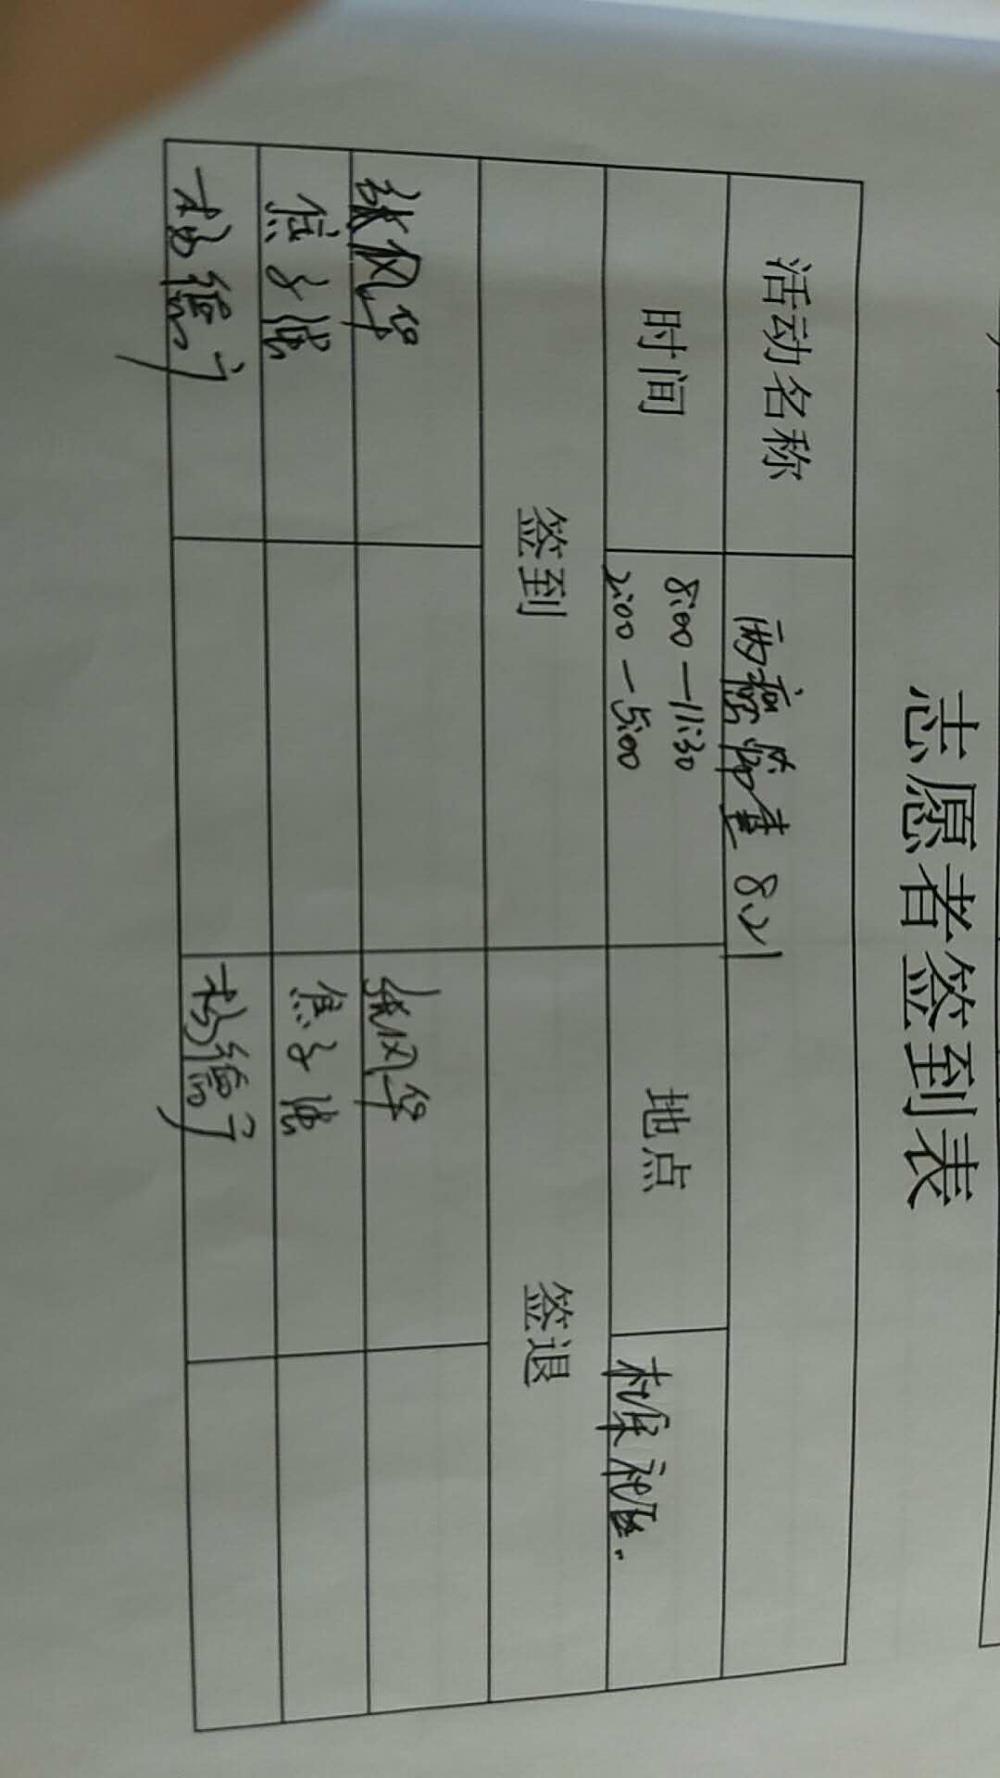 志愿者签到表
活动名称 两癌筛查 8.21
时间 8:00-11:30 地点 机床社区.
2:00-5:00
签到 签退
张凤华 张凤华
焦
杨德 杨德